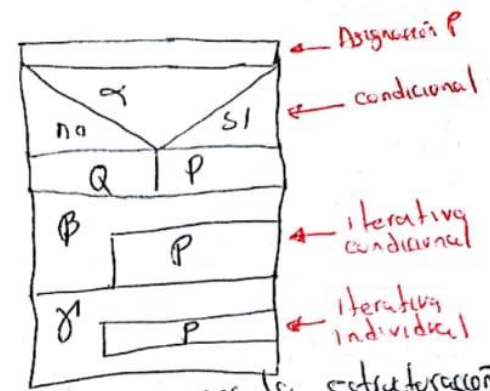 Asignación P
α
condicional
no
SI
Q
P
β
iterativa
condicional
P
γ
iterativa
individual
P
la estructuración